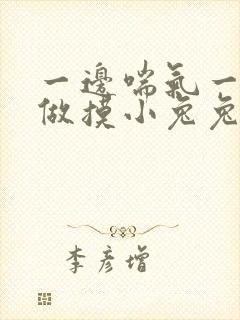 一邊喘氣一
做摸小兔兔
李彥增